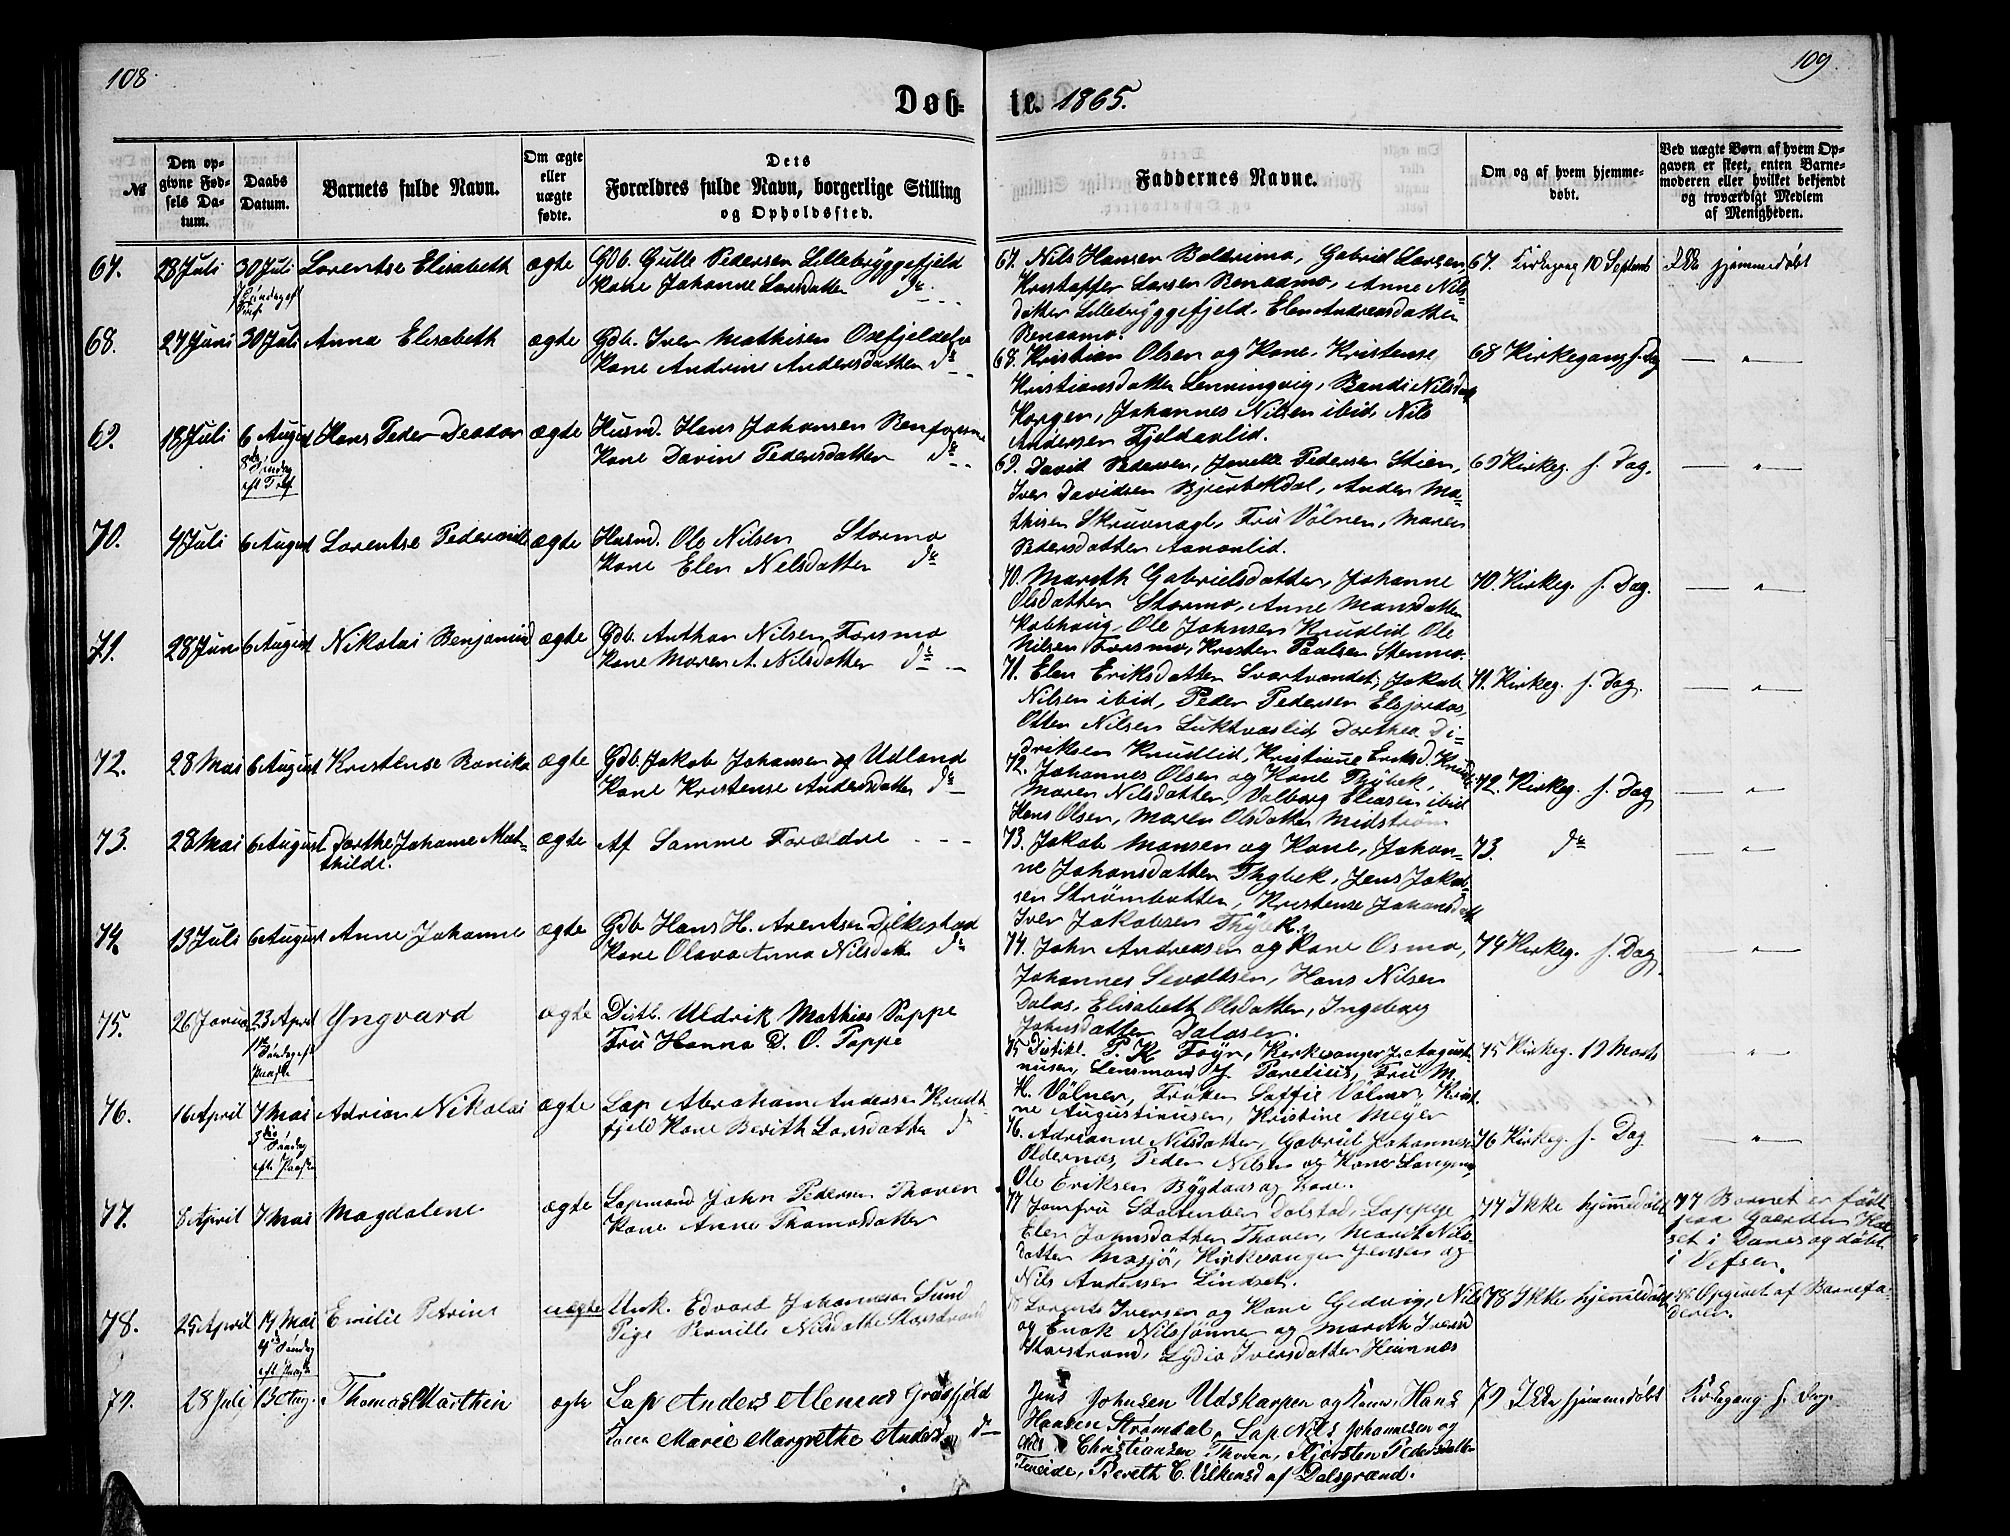 108.
109.
Døb-
te. 1865.
№
Den op-
givne Fød-
sels Da-
tum.
Daabs
Datum.
Barnets fulde Navn.
Om ægte
eller
uægte
fødte.
Dets
Forældres fulde Navn, borgerlige Stilling
og Opholdssted.
Faddernes Navne.
Om og af hvem hjemme-
døbt.
Ved uægte Børn af hvem Op-
gaven er skeet, enten Barne-
moderen eller hvilket bekjendt
og troværdigt Medlem
af Menigheden.
67. 28 Juli 30 Juli Lorentse Elisabeth ægte Gdb. Gutle Pedersen Lillebryggefjeld
Kone Johanne Larsdatter do
67. Nils Hansen Baldrimo, Gabriel Larsen
Kristoffer Larsen Renaamo, Anne Nils-
datter Lillebryggefjeld. Elen Andreasdatter
Renaamo.
67. Kirkegang 10 September Ikke hjemmedøbt
68. 27 Juni 30 Juli Anna Elisabeth ægte Gdb. Iver Mathisen
Kone Andrine Andersdatter do
68. Kristian Olsen og Kone, Kristense
Kristiansdatter Lenningvig, Nilsdat
Korgen, Johannes Nilsen ibid, Nils
Andersen Fjeldavlid.
68 Kirkegang s. Dag — " —
69. 18 Juli 6 August Hans Peder Deador ægte Husmd. Hans Johansen
8de Søndag
eft Tref
Kone Davine Pedersdatter do
69. David Pedersen, Pedersen Stien,
Iver Davidsen Bjurbekdal, Anders Ma-
thisen Skruvnagl, Fru Völner, Maren
Pedersdatter Aanonlid.
69 Kirkeg. s. Dag. — " —
70. 4 Juli 6 August Lorentse ægte Husmd. Ole Nilsen Stormo
Kone Elen Nilsdatter do
70. Mareth Gabrielsdatter, Johanne
Olsdatter Stormo, Anne Mansdatter
Kobhaug, Ole Johnsen Knudlid Ole
Nilsen Forsmo, Kristen Paulsen Stenmo.
70. Kirkeg. s. Dag. — " —
71. 28 Juni 6 August Nikolai Benjamin ægte Gdb. Anthon Nilsen Forsmo
Kone Maren A. Nilsdatter do
71. Elen Eriksdatter Svartvandet, Jakob
Nilsen ibid, Peder Pedersen Elsjordos,
Otter Nilsen Luktvaslid Dorthea Di-
driksen Knudlid, Kristiane Eriksd. Knudl
71. Kirkeg. s. Dag. — " —
72. 28 Mai 6 August Kristense Ronika ægte Gdb. Jakob Johansen Udland
Kone Kristense Andersdatter do
72. Johannes Olsen og Kone Thybek,
Maren Nilsdatter, Valborg Eliasen ibid
Hans Olsen, Maren Olsdatter Midström
72. Kirkeg. s. Dag — " —
73. 28 Mai 6 August Dorthe Johanne Mat-
thilde. ægte Af Samme Forældre
73. Jakob Mansen og Kone, Johan-
ne Johansdatter Thybek, Jens Jakob-
sen Strømbotten, Kristense Johansdatt
Iver Jakobsen Thybek.
73. do — " —
74. 13 Juli 6 August Anne Johanne ægte Gdb Hans H. Arentsen Dilkestad
Kone Olava Anna Nilsdatt do
74. John Andreasen og Kone Osmo,
Johannes Sivaltsen, Hans Nilsen
Dalos, Elisabeth Olsdatter, Ingeborg
Johnsdatter Dalosen.
74 Kirkeg. s. Dag. — " —
75. 26 Januar 23 April Yngvard ægte Distl. Uldrik Mathias Poppe
1ste Søndag eft
Paaske
Fru Hanna D. O. Poppe
75 Distikl. P. K. Foyn, Kirkesanger J. August-
inusen, Lensmand J. Paretius, Fru M.
H. Völner, Frøken Soffie Völner, Krist-
ne Augustinusen, Kristine Meyer
75 Kirkeg. 19 Marts — " —
76. 16 April 7 Mai Adrian Nikolai ægte Lap Abraham Andersen
3die Søndag
eft. Paaske
fjeld Kone Berith Larsdatter do
76. Adrianne Nilsdatter, Gabriel Johannesen
Oldernæs, Peder Nilsen og Kone
Ole Eriksen Bygdaas og Kone.
76 Kirkeg. s. Dag. — " —
77. 8 April 7 Mai Magdalene ægte Lapmand John Pedersen Thoven
Kone Anne Thomasdatter
77 Jomfru Stoltenberg Dolstad, Lappige
Elen Johnsdatter Thoven, Marit Nils-
datter Masjö, Kirkesanger Jensen og
Nils Andersen Lindset.
77 Ikke hjemmedøbt 77 Barnet er født
paa Gaarden
set i Dønes og døbt
i Vefsen.
78. 25 April 14 Mai Emilie Petrine uægte Unk. Edvard Johannesen Sund
4de Søndag
eft Paaske
Pige Pernille Nilsdatter Storstrand
78 Lorents Iversen og Kone Gedvig, Nils
og Enok Nilssønner og Mareth Iversd
Storstrand, Lydia Iversdatter Heimnæs
78 Ikke hjemmedøbt 78 Opgivet af Barnefa-
deren.
79. 28 Juli 13 Aug. Thomas Marthin ægte Lap Anders Klemed Graafjeld
Kone Marie Margrethe Andersd do
Jens Johnsen Udskarpen og Kone, Hans
Hansen Strømdal, Lap Nils Johannesen og
Nils Christiansen Thoven, Kjersten Pedersdatter
Fineide, Bereth C. Vilkensd af Dalsgrænd.
79 Ikke hjemmedøbt Kirkegang s. Dag.